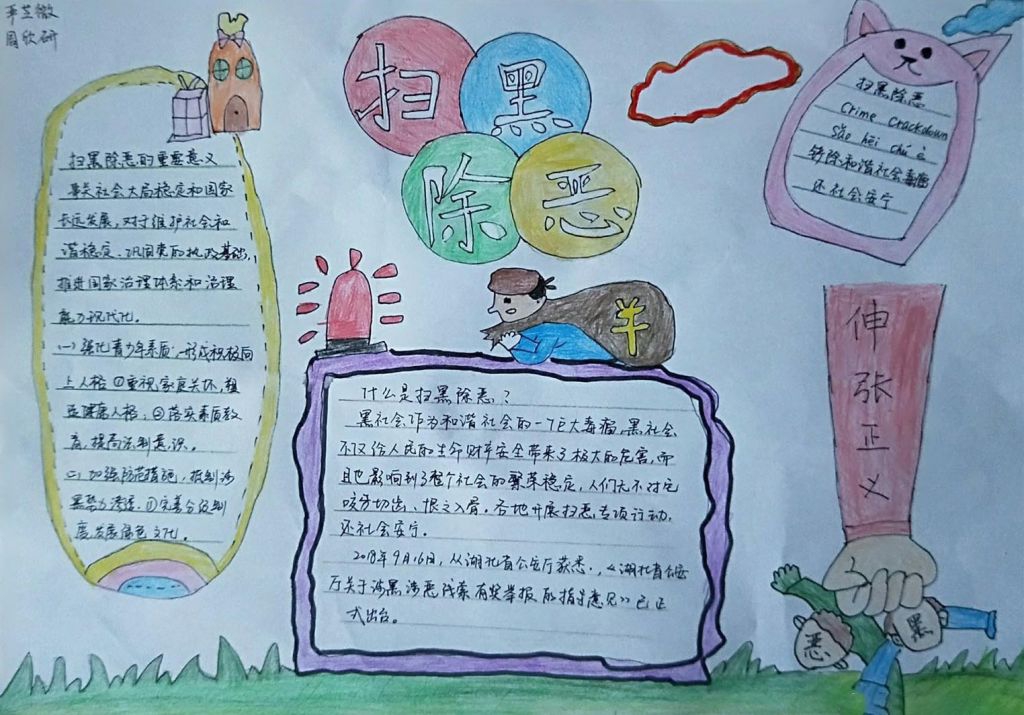 周欣研
扫黑除恶
扫黑除恶的重要意义
事关社会大局稳定和国家
长远发展,对于维护社会和
谐稳定、巩固党的执政基础,
推进国家治理体系和治理
能力现代化。
(一)强化青少年素质:形成积极向
上人格①重视家庭关怀,塑
健康人格;②落实素质教
育,提高法制意识。
(二)加强防范措施,抵制涉
黑势力渗透。①完善分级制
度,发展绿色文化。
羊
什么是扫黑除恶?
黑社会作为和谐社会的一个巨大毒瘤,黑社会
不仅给人民的生命财产安全带来了极大的危害,而
且也影响到了整个社会的繁荣稳定,人们无不对它
咬牙切齿、恨之入骨。各地开展扫恶专项行动,
还社会安宁。
2018年9月16日,从湖北省公安厅获悉,《湖北省公安
厅关于涉黑涉恶线索有奖举报的指导意见》已正
式出台。
扫黑除恶
Crime Crackdown
sǎo hēi chú è
铲除和谐社会毒瘤
还社会安宁
伸张正义
恶
黑